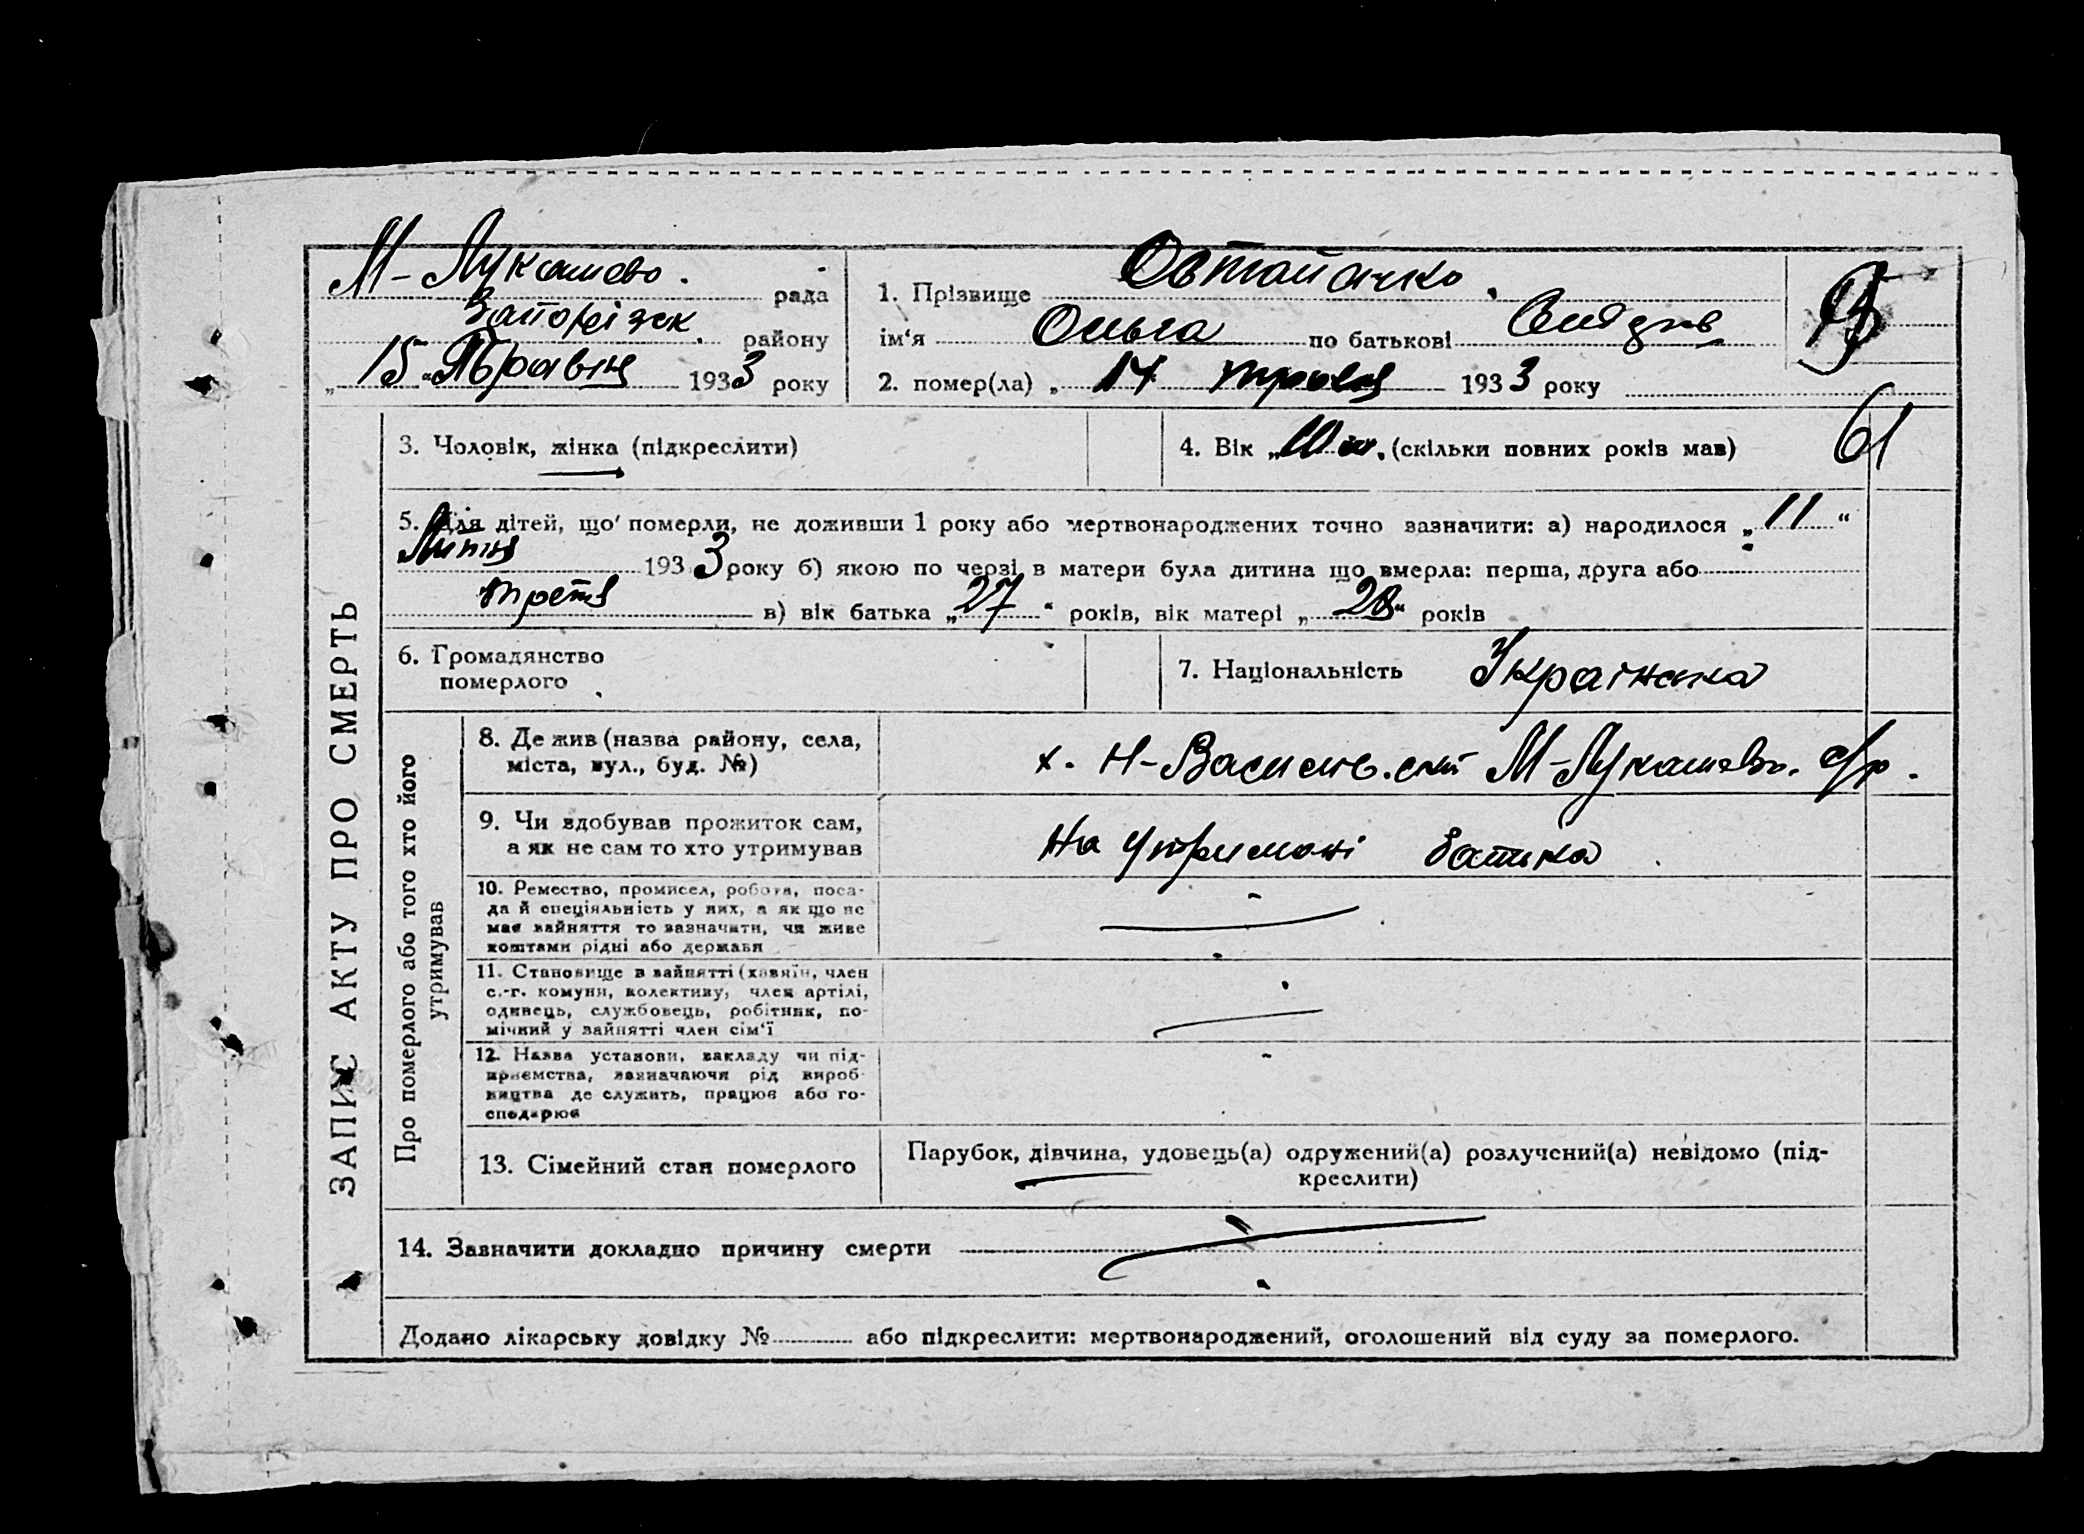 М-Лукашево. рада
Запорізк. району
„15" Травня 1933 року
1. Прізвище
ім'я Ольга по батькові
2. помер(ла) „14 травня 1933 року
61
ЗАПИС АКТУ ПРО СМЕРТЬ
3. Чоловік, жінка (підкреслити)
4. Вік „10 м. (скільки повних років мав)
5. Для дітей, що померли, не доживши 1 року або мертвонароджених точно зазначити: а) народилося „11"
Липня 1933 року б) якою по черзі в матери була дитина що вмерла: перша, друга або
третя в) вік батька „27" років, вік матері „28" років
6. Громадянство
померлого
7. Національність Українка
Про померлого або того хто його
утримував
8. Де жив (назва району, села,
міста, вул., буд. №)
х. Н-Василь.ский М-Лукашев. с/р.
9. Чи здобував прожиток сам,
а як не сам то хто утримував
На утримані батька
10. Ремество, промисел, робота, поса-
да й спеціяльність у них, а як що не
має зайняття то зазначити, чи живе
коштами рідні або держави
11. Становище в зайнятті (хазяїн, член
с.-г. комуни, колективу, член артілі,
одинець, службовець, робітник, по-
мічний у зайнятті член сім'ї
12. Назва установи, закладу чи під-
приємства, зазначаючи рід вироб-
ництва де служить, працює або го-
сподарює
13. Сімейний стан померлого
Парубок, дівчина, удовець(а) одружений(а) розлучений(а) невідомо (під-
креслити)
14. Зазначити докладно причину смерти
Додано лікарську довідку № або підкреслити: мертвонароджений, оголошений від суду за померлого.